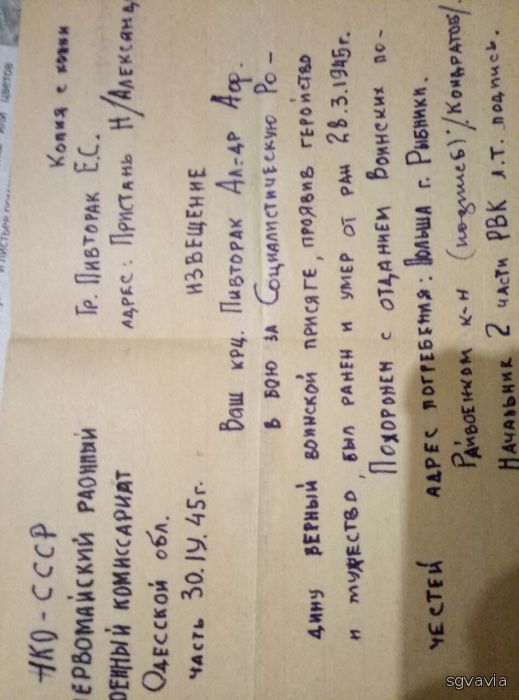 Копия с копии
НКО-СССР
ПЕРВОМАЙСКИЙ РАОННЫЙ
ОЕННЫЙ КОМИССАРИАТ
ОДЕССКОЙ ОБЛ.
ЧАСТЬ 30.IV.45г.
Гр. ПИВТОРАК Е.С.
АДРЕС: ПРИСТАНЬ Н/АЛЕКСАНД
ИЗВЕЩЕНИЕ
ВАШ КРЦ. ПИВТОРАК АЛ=ДР АФ.
В БОЮ ЗА СОЦИАЛИСТИЧЕСКУЮ РО-
ДИНУ ВЕРНЫЙ ВОИНСКОЙ ПРИСЯГЕ, ПРОЯВИВ ГЕРОЙСТВО
И МУЖЕСТВО, БЫЛ РАНЕН И УМЕР ОТ РАН 28.3.1945г.
ПОХОРОНЕН С ОТДАНИЕМ ВОИНСКИХ ПО-
ЧЕСТЕЙ АДРЕС ПОГРЕБЕНИЯ: ПОЛЬША г. РЫБНИКИ.
РАЙВОЕНКОМ К-Н (подпись) /КОНДРАТОВ/.
НАЧАЛЬНИК 2 ЧАСТИ РВК Л.Т. ПОДПИСЬ.
или цветов
sgvavia